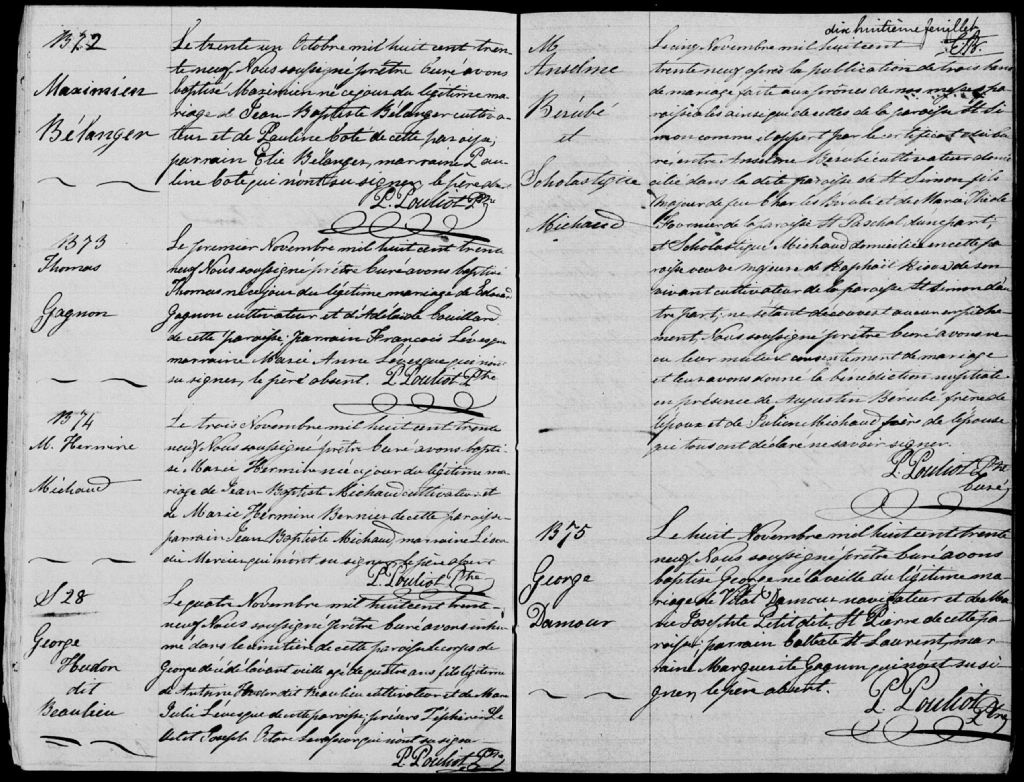 B72
Maximien
Bélanger
Le trente un Octobre mil huit cent tren
te neuf Nous soussigné prêtre curé avons
baptisé Maximien né ce jour du légitime ma
riage d Jean Baptiste Bélanger cultiva
teur et de Pauline Coté de cette paroisse,
parrain Elie Bélanger, marraine Pau
line Coté qui n'ont su signer, le père
P. Pouliot Ptre
B73
Thomas
Gagnon
Le premier Novembre mil huit cent trente
neuf Nous soussigné prêtre curé avons baptisé
Thomas né ce jour du légitime mariage de Edouard
Gagnon cultivateur et d Adelaide Couillard
de cette paroisse; parrain Francois Lévesque
marraine Marie Anne Lévesque qui n'ont
su signer, le père absent. P. Pouliot Ptre
B74
M. Hermine
Michaud
Le trois Novembre mil huit cent trente
neuf Nous soussigné prêtre curé avons bapti
sé Marie Hermine née ce jour du légitime ma
riage de Jean Baptiste Michaud cultivateur et
de Marie Hermine Bernier de cette paroisse
parrain Jean Baptiste Michaud, marraine
Mercier qui n'ont su signer le père absent
P. Pouliot Ptre
S 28
George
Hudon
dit
Beaulieu
Le quatre Novembre mil huit cent trente
neuf Nous soussigné prêtre curé avons inhu
mé dans le cimetière de cette paroisse le corps de
George décédé l'avant veille agé de quatre ans fils légitime
de Antoine Hudon dit Beaulieu cultivateur et de Marie
Julie Lévesque de cette paroisse; présens Zéphirin
et Joseph Octave Levasseur qui n'ont su signer
P. Pouliot Ptre
dix huitième feuillet
M
Anselme
Bérubé
et
Scholastique
Michaud
Le cinq Novembre mil huit cent
trente neuf après la publication de trois bans
de mariage faite aux prônes de nos messes pa
roissiales ainsi que de celles de la paroisse St Si
mon comme il appert par le certificat du cu
ré, entre Anselme Bérubé cultivateur domi
cilié dans la dite paroisse de St Simon fils
majeur de feu Charles Bérubé et de Marie
de la paroisse St Paschal d'une part;
et Scholastique Michaud domiciliée en cette pa
roisse veuve majeure de Raphaël Rioux de son
vivant cultivateur de la paroisse St Simon d'au
tre part; ne s'étant découvert aucun empêche
ment, Nous soussigné prêtre curé avons re
çu leur mutuel consentement de mariage
et leur avons donné la bénédiction nuptiale
en présence de Augustin Bérubé frère de
l'époux et de Julien Michaud frère de l'épouse
qui tous ont déclaré ne savoir signer.
P. Pouliot Ptre
Curé
B75
George
Damour
Le huit Novembre mil huit cent trente
neuf Nous soussigné prêtre curé avons
baptisé George né la veille du légitime ma
riage de Vital Damour navigateur et de Ma
rie Josephte Petit dite St Pierre de cette pa
roisse; parrain Calixte St Laurent, mar
raine Marguerite Gagnon qui n'ont su si
gner, le père absent.
P. Pouliot
Ptre